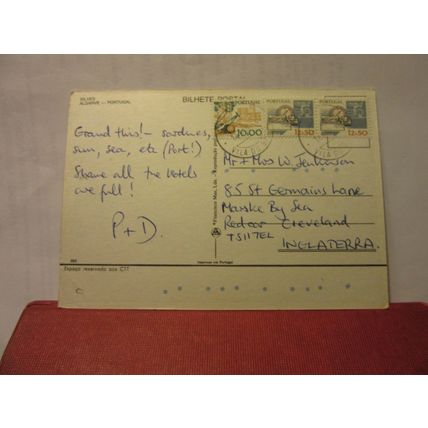 SILVES
ALGARVE — PORTUGAL
BILHETE POSTAL
PORTUGAL
10.00
PORTUGAL
12.50
PORTUGAL
12.50
Grand this! - sardines,
sun, sea, etc (Port!)
Shame all the hotels
are full!
P + D.
Mr + Mrs W.
85 St Germains Lane
Marske By Sea
Redcar Cleveland
TS11 7EL
INGLATERRA.
Espaço reservado aos CTT
Impresso em Portugal